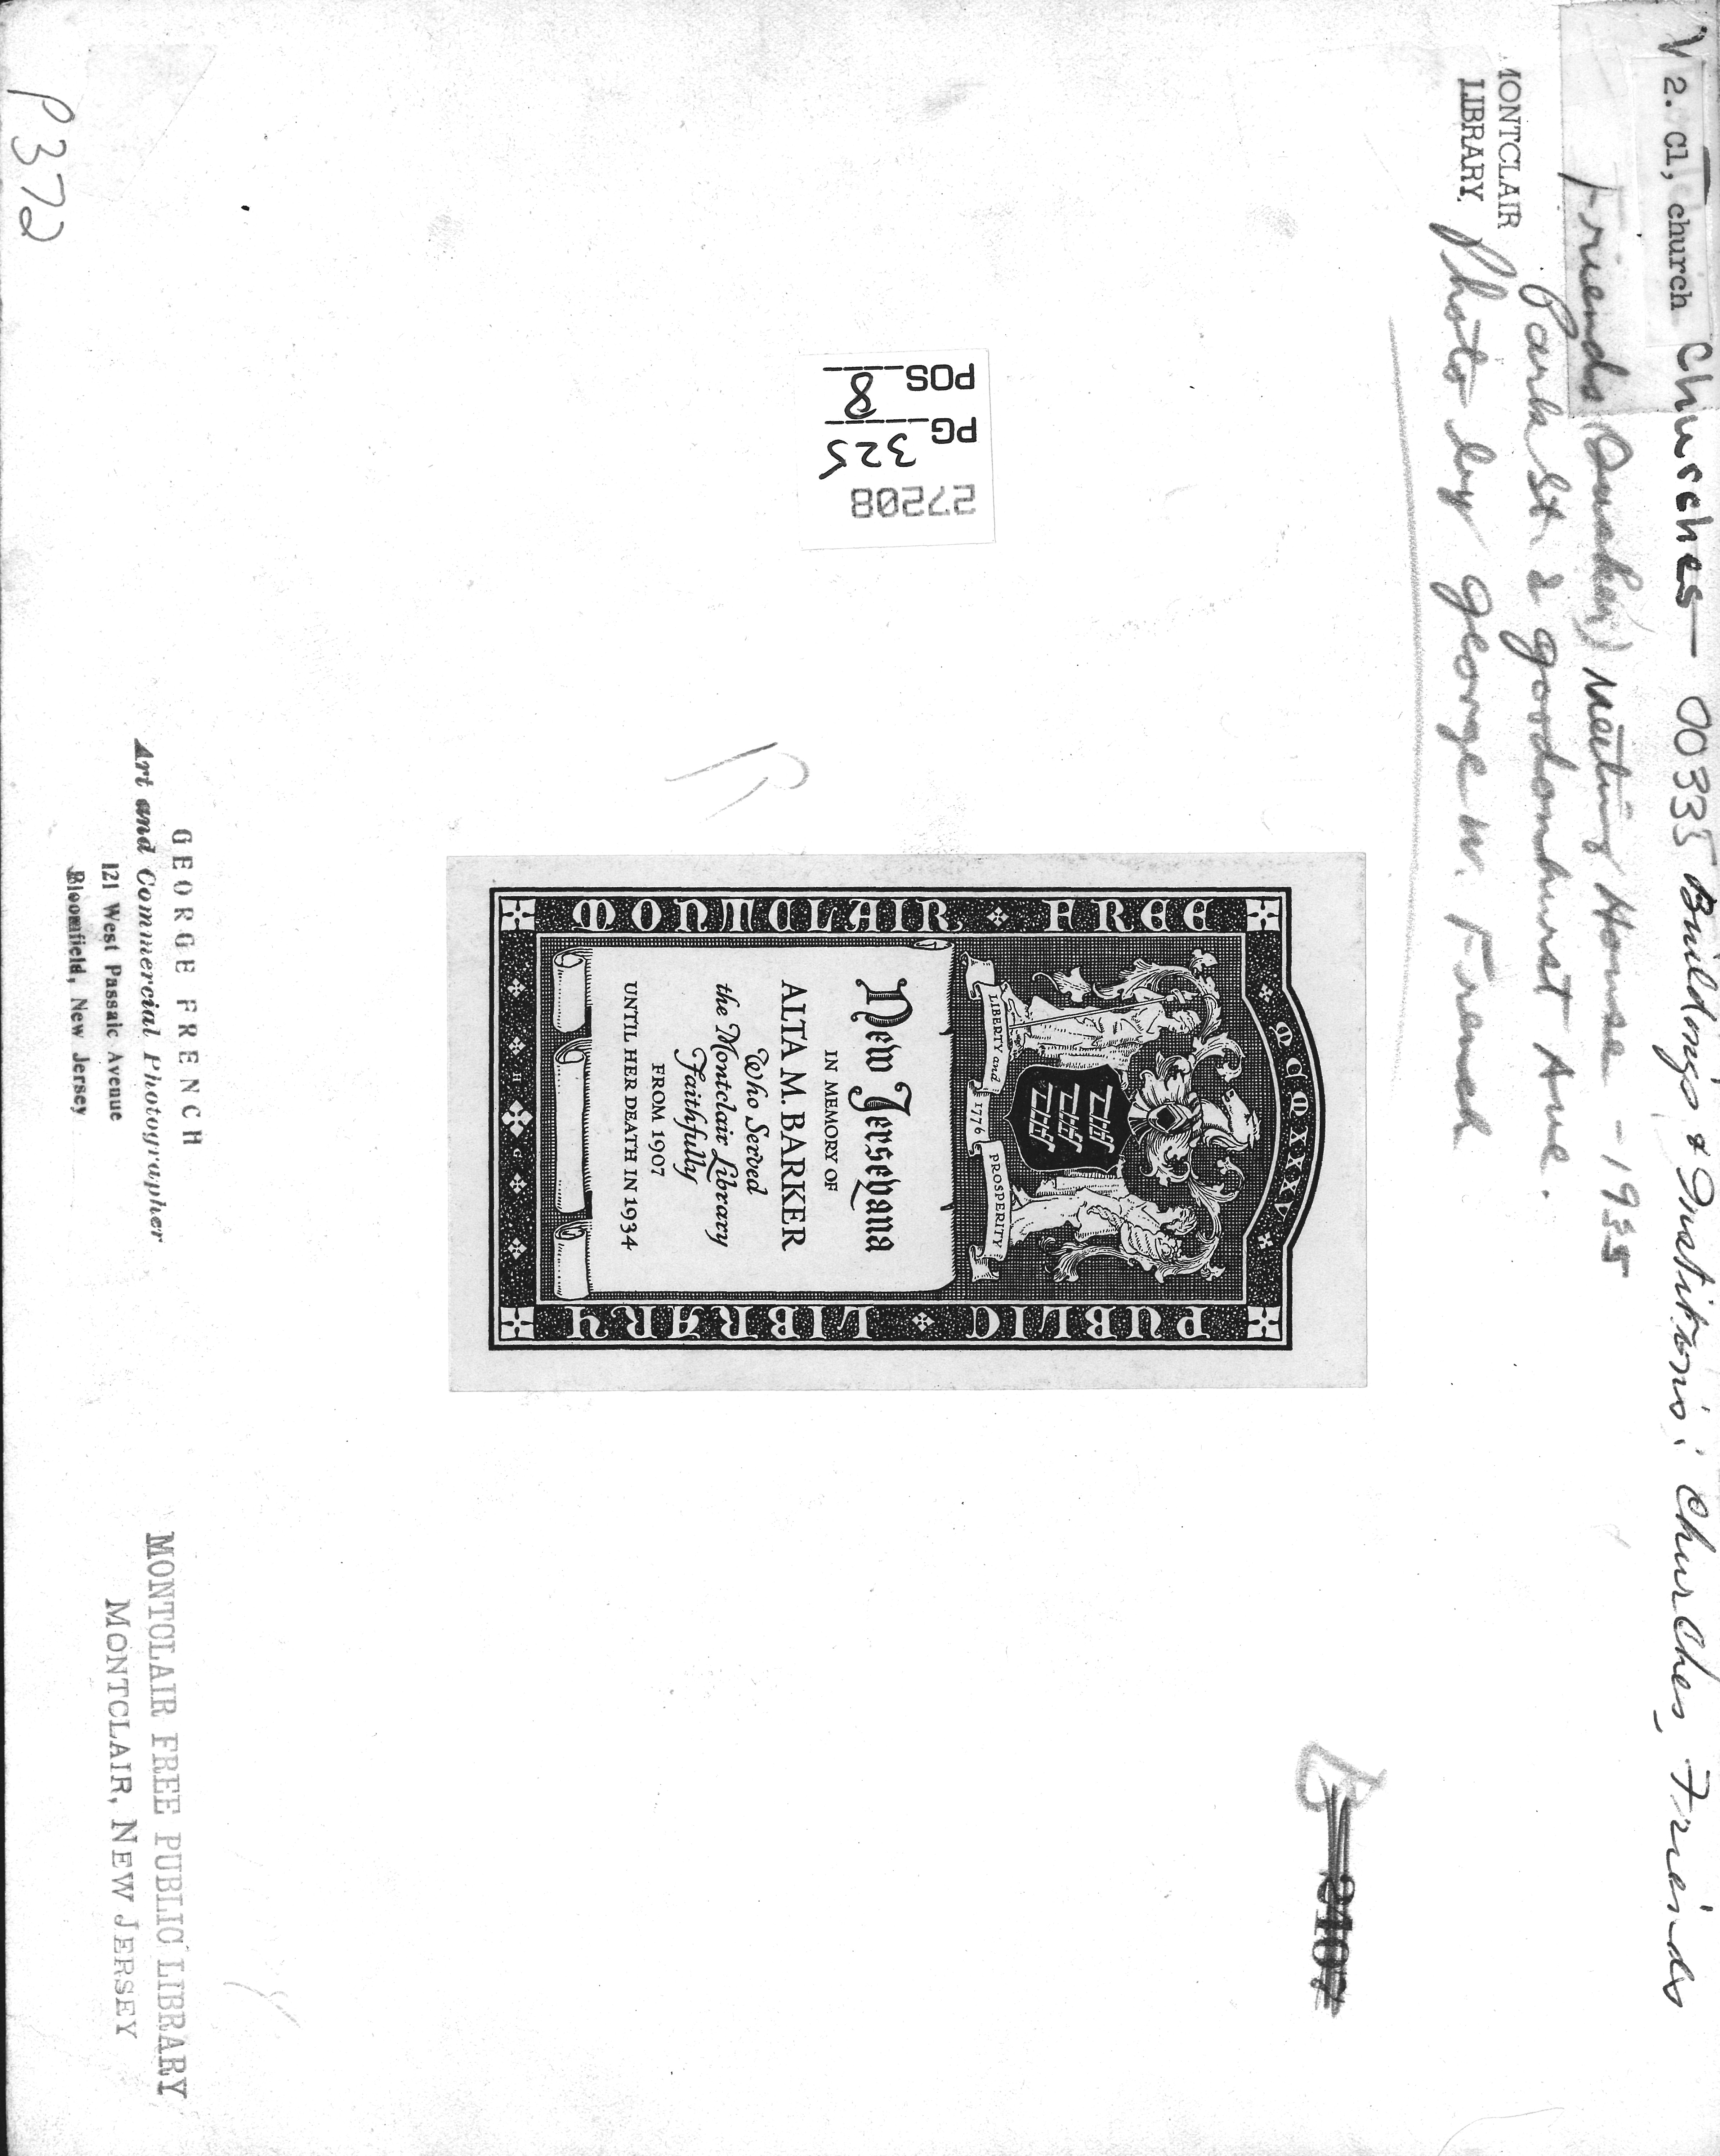 V2. Cl, church Churches - 00335 Buildings & Institutions: Churches, Friends
Friends (Quaker) Meeting House - 1935
Park St. & Goodonhurst Ave.
MONTCLAIR
LIBRARY.
Photo by George W. French
27208
PG 325
POS 8
MONTCLAIR ❖ FREE
MCMXXXV
PUBLIC ❖ LIBRARY
LIBERTY and 1776 PROSPERITY
New Jerseyana
IN MEMORY OF
ALTA M. BARKER
Who Served
the Montclair Library
Faithfully
FROM 1907
UNTIL HER DEATH IN 1934
H C
B 3107
GEORGE FRENCH
Art and Commercial Photographer
121 West Passaic Avenue
Bloomfield, New Jersey
MONTCLAIR FREE PUBLIC LIBRARY
MONTCLAIR, NEW JERSEY
P372